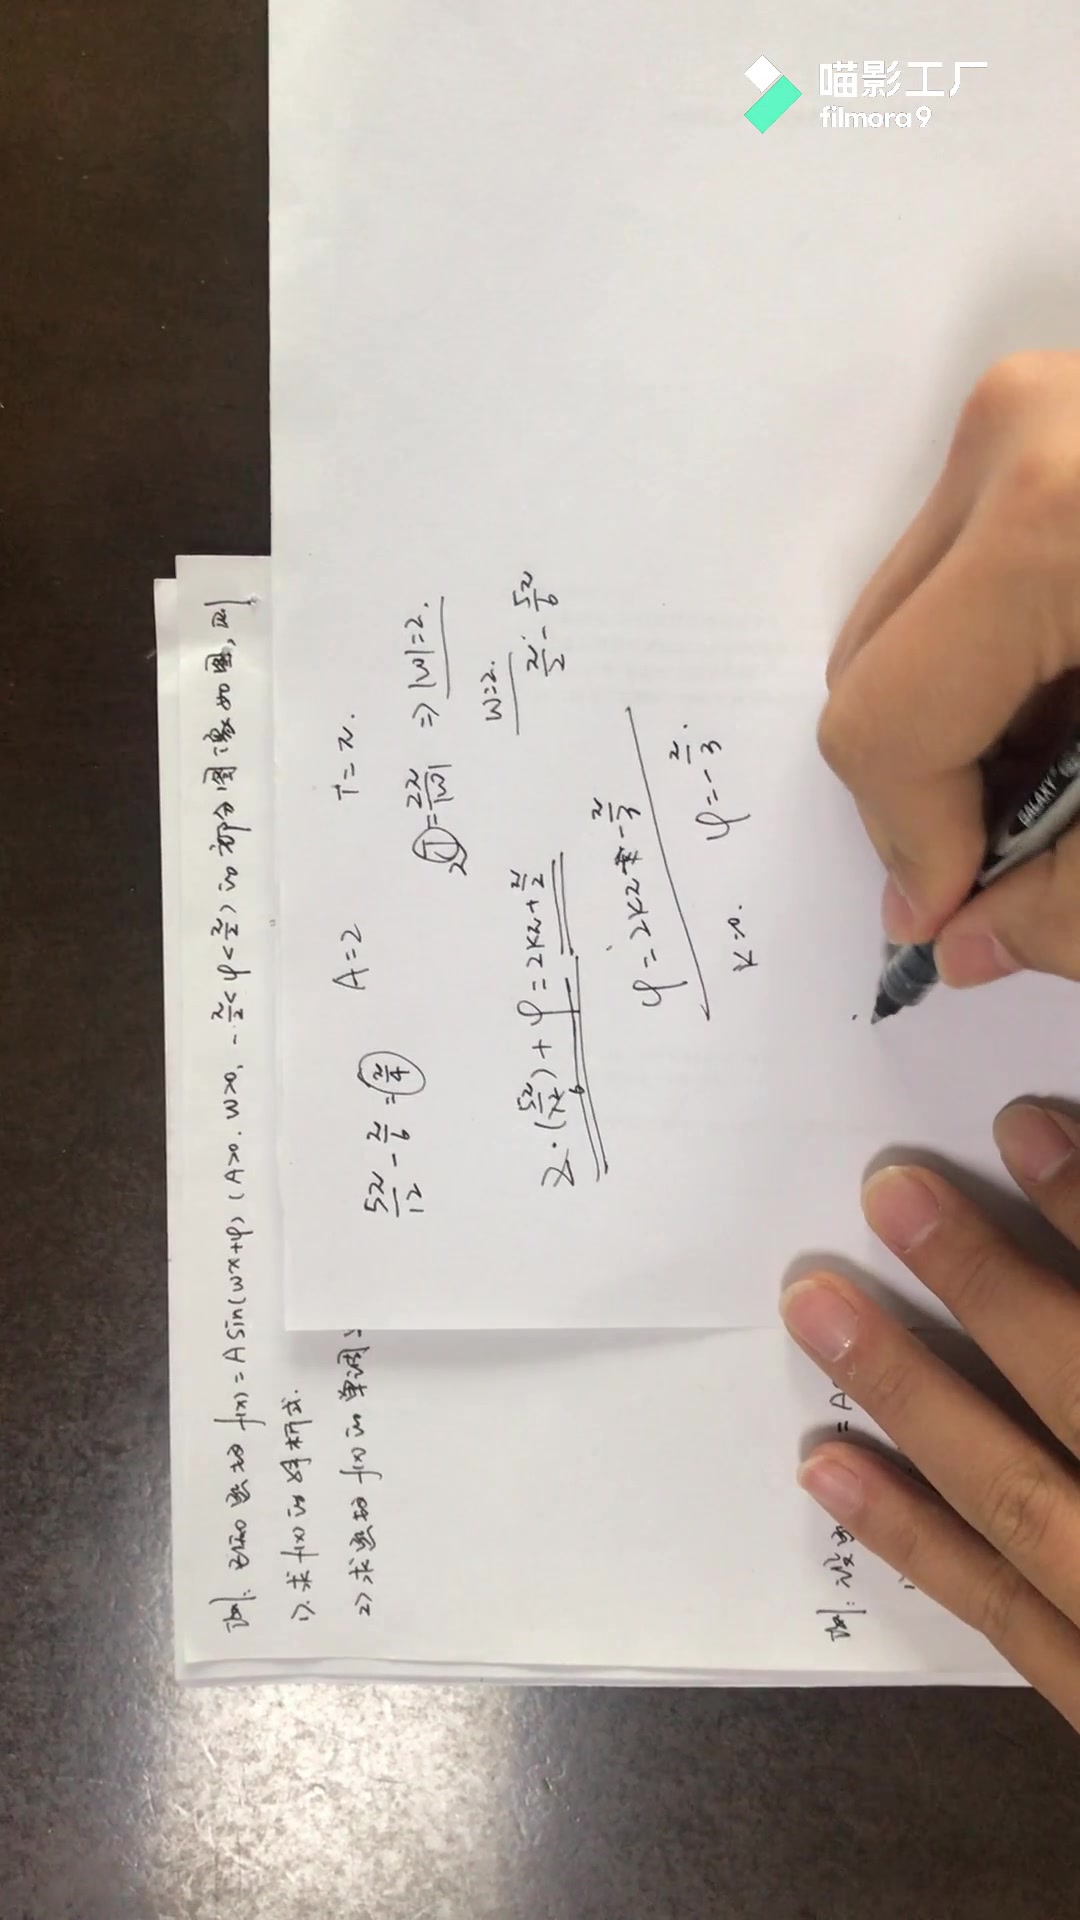 喵影工厂
filmora9
例: 已知函数 f(x)=Asin(wx+φ) (A>0. w>0, -π/2<φ<π/2) 的部分图像如图,则
1). 求 f(x) 的解析式.
2) 求函数 f(x) 的单调
5π/12 - π/6 = π/4 A=2 T=π.
T=2π/|w| ⇒ |w|=2.
2
w=2.
2·(5π/12)+φ=2kπ+π/2 π/2-5π/6
6
φ=2kπ-π/3
k=0. φ=-π/3.
例: 设 =A
GALAXY